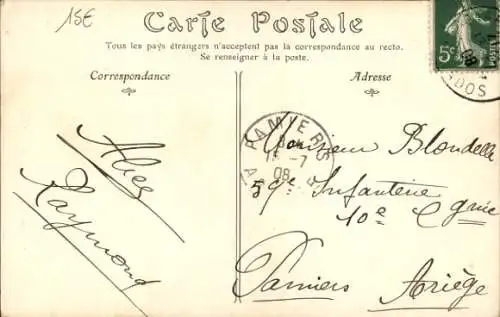 15€
Carte Postale
Tous les pays étrangers n'acceptent pas la correspondance au recto.
Se renseigner à la poste.
Correspondance
Adresse
5c
08
DOS
PAMIERS
-7
08
Monsieur Blondelle
59e Infanterie
10e Cgnie
Pamiers Ariège
Raymond